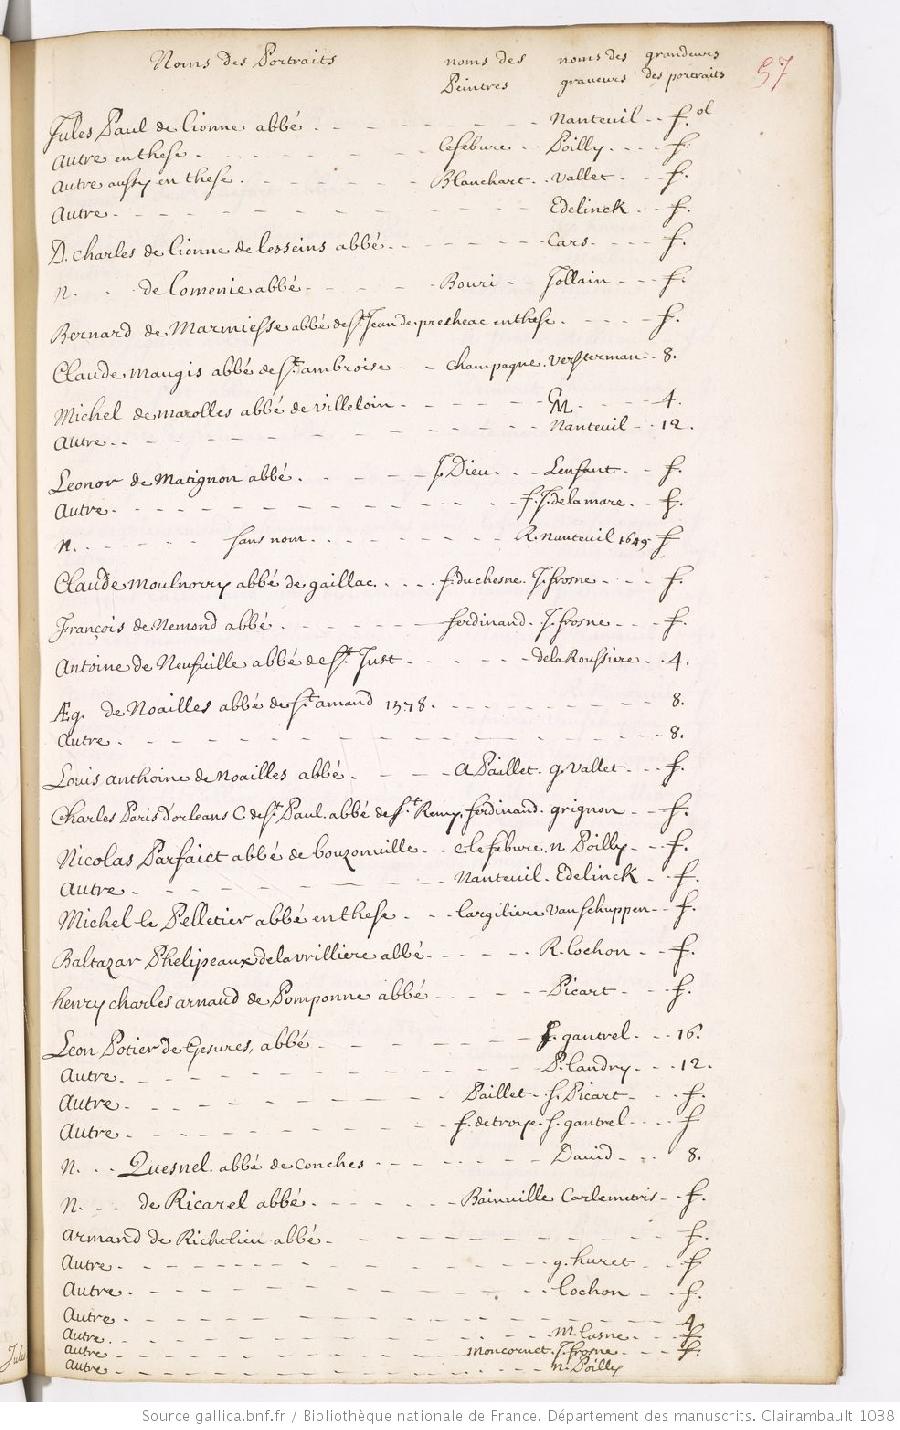 Noms des Portraits noms des Peintres noms des graveurs grandeurs des portraits 57
Jules Paul de Lionne abbé. Nanteuil f.ol
Autre en these. Lefebure Poilly f.
Autre aussy en these. Blanchart Vallet f.
Autre. Edelinck f.
D. Charles de Lionne de Lesseins abbé. Cars. f.
N. de Lomenie abbé. Bouri Jollain f.
Bernard de Marmiesse abbé de St Jean de en these. f.
Claude Maugis abbé de St. ambroise champagne. Vorsterman 8.
Michel de Marolles abbé de Villeloin. C. M. 4.
Autre. Nanteuil 12.
Leonor de Matignon abbé. J. Dieu Lenfant f.
Autre. f. J. de la mare f.
N. sans nom. R. Nanteuil 1649 f
Claude Moulnorry abbé de gaillac. f. duchesne. J. frosne f.
François de Nemond abbé. ferdinand. J. frosne f.
Antoine de Neufville abbé de St. Just. de la Roussiere 4.
Æg. de Noailles abbé de St. amand 1578. 8.
Autre. 8.
Louis anthoine de Noailles abbé. A Paillet. g. Vallet f.
Charles Paris d'orleans C. de St. Paul. abbé de St. Remy. ferdinand. grignon f.
Nicolas Parfaict abbé de bouzonville. C lefebure. n Poilly f.
Autre. Nanteuil. Edelinck f.
Michel le Pelletier abbé en these. Largiliere Van Schuppen f.
Baltazar Phelipeaux de la vrilliere abbé. R. Lochon f.
henry charles arnaud de Pomponne abbé Picart f.
Leon Potier de Gesures, abbé f. gantrel 16.
Autre. P. Landry. 12.
Autre. Paillet f. Picart f.
Autre. f. de troye. f. gantrel f
N. Quesnel. abbé de Conches David 8.
N. de Ricarel abbé. Bainville f.
Armand de Richelieu abbé. f.
Autre. g. huret f
Autre. Lochon f.
Autre. 4.
Autre. M. Lasne f
Autre. Moncornet. J. frosne f.
Autre. n. Poilly
Source gallica.bnf.fr / Bibliothèque nationale de France. Département des manuscrits. Clairambault 1038